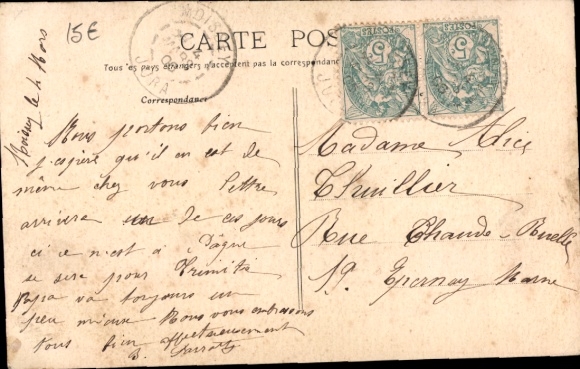 15€
CARTE POS
Tous les pays étrangers n'acceptent pas la correspondance
Correspondance
le 4 Mars
Nous portons bien
j'espère qu'il en est de
même chez vous Lettre
arrivera un de ces jours
ci ce n'est à Pâque
se sera pour Trinité
Papa va toujours un
peu mieux Nous vous embrassons
tous bien affectueusement
B.
Madame Alice
Thuillier
Rue Chaude-Ruelle
19. Epernay Marne
POSTES
5
POSTES
5